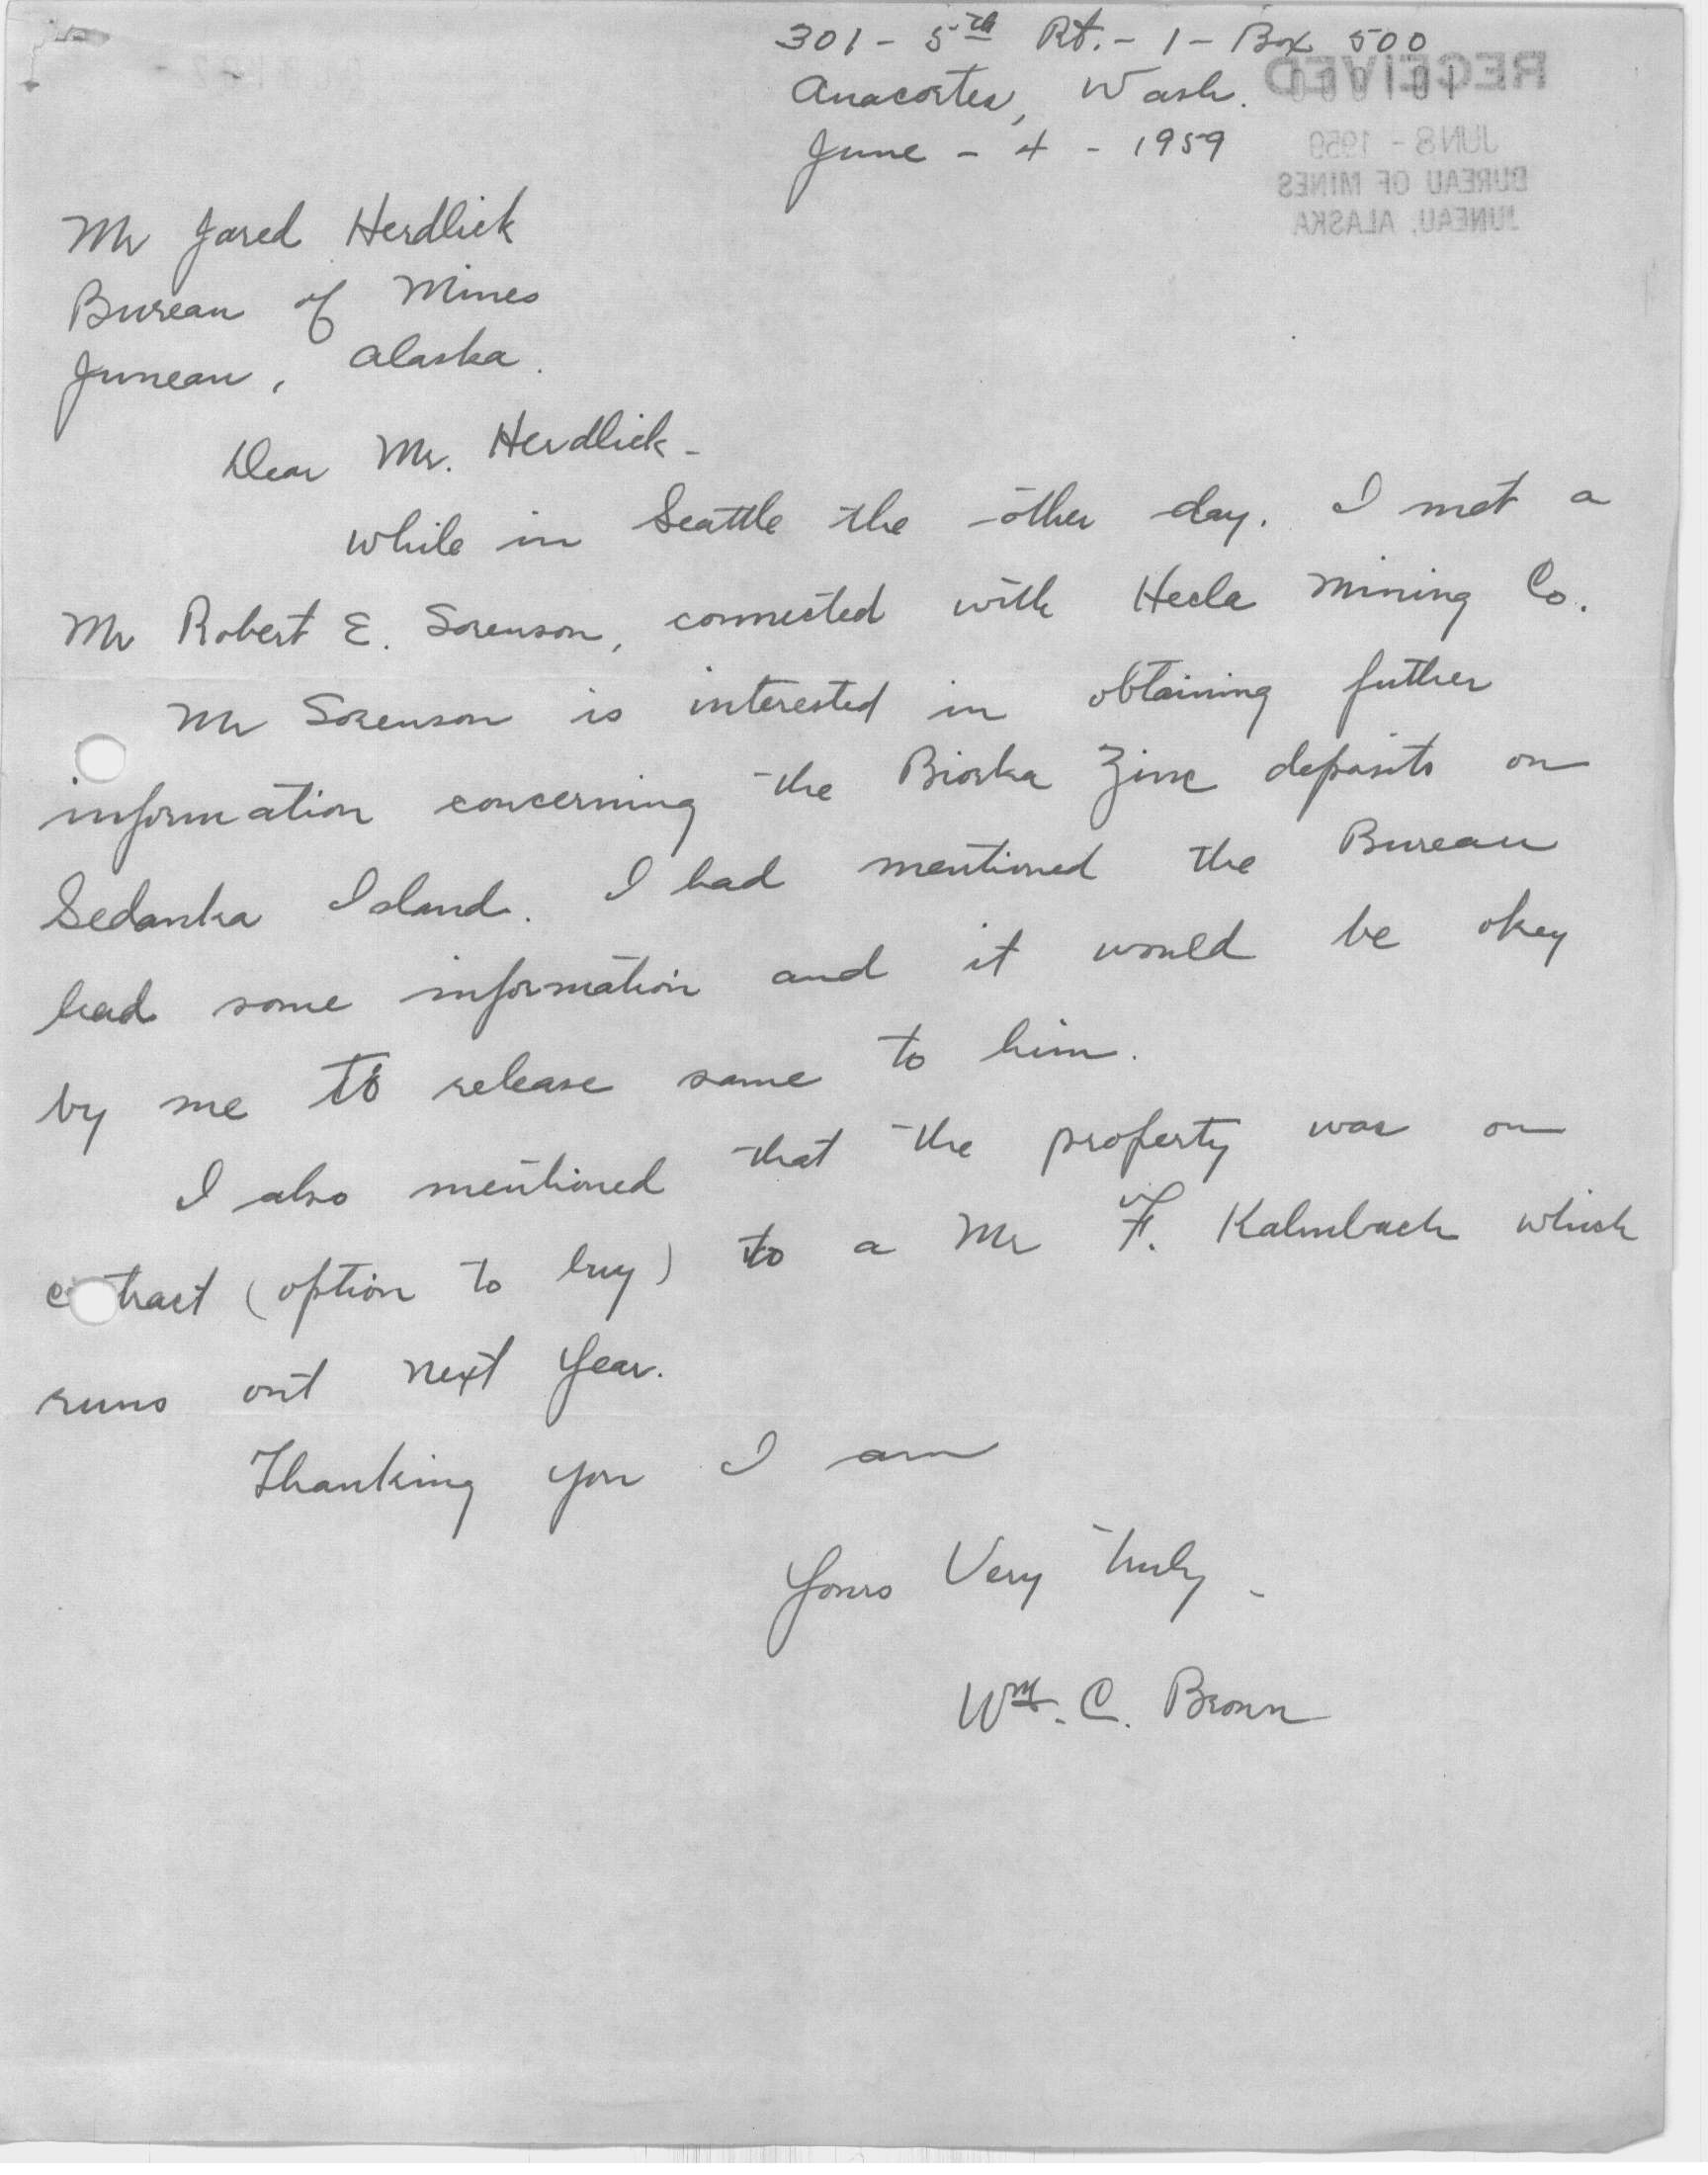 301 - 5th Rt. - 1 - Box 500
Anacortes, Wash.
June - 4 - 1959
RECEIVED
JUN 8 - 1959
BUREAU OF MINES
JUNEAU, ALASKA
Mr Jared Herdlick
Bureau of Mines
Juneau, Alaska.
Dear Mr. Herdlick -
While in Seattle the other day. I met a
Mr Robert E. Sorenson, connected with Hecla Mining Co.
Mr Sorenson is interested in obtaining futher
information concerning the Biorka Zinc deposits on
Sedanka Island. I had mentioned the Bureau
had some information and it would be okey
by me to release same to him.
I also mentioned that the property was on
contract (option to buy) to a Mr F. Kalmbach which
runs out next year.
Thanking you I am
Yours Very Truly -
Wm. C. Brown